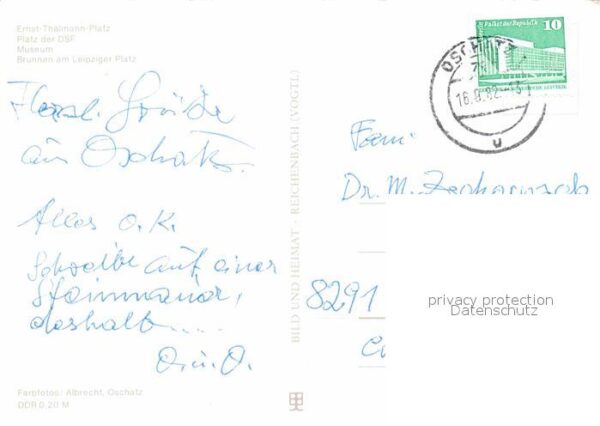 Ernst-Thälmann-Platz
Platz der DSF
Museum
Brunnen am Leipziger Platz
Herzl. Grüße
aus Oschatz.
Alles o.K.
Schreibe auf einer
Steinmauer,
deshalb....
Farbfotos: Albrecht, Oschatz
DDR 0,20 M
BILD UND HEIMAT · REICHENBACH (VOGTL)
Palast der Republik 10
OSCHATZ
16.9.82
u
Fam.
Dr. M.
8291
privacy protection
Datenschutz